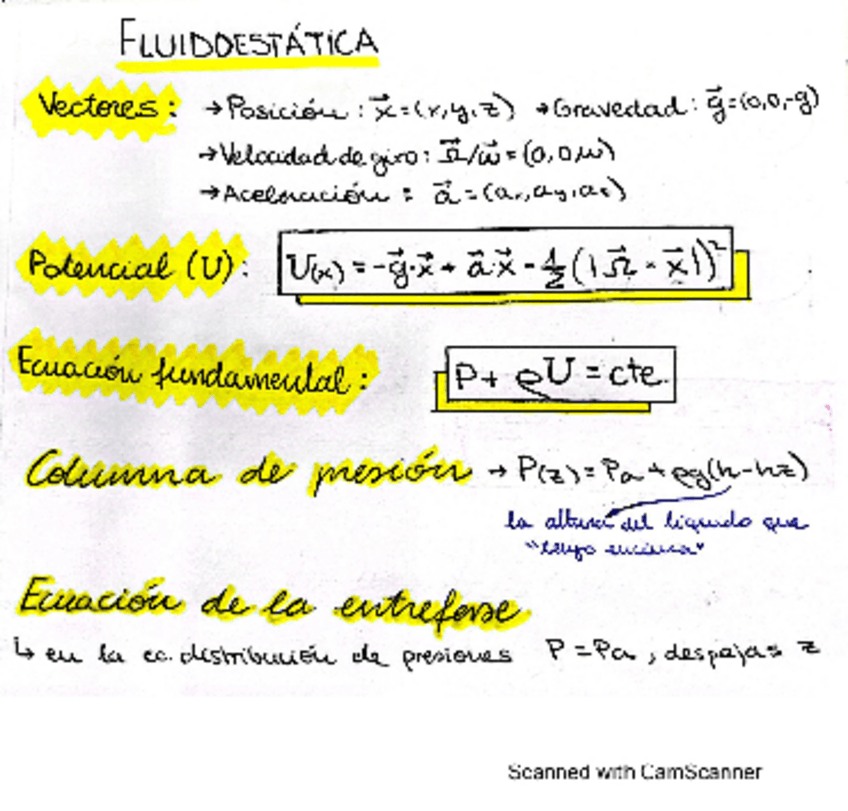 FLUIDOESTÁTICA
Vectores: → Posición: x⃗=(x,y,z) → Gravedad: g⃗=(0,0,-g)
→ Velocidad de giro: Ω⃗/ω⃗=(0,0,ω)
→ Aceleración: a⃗=(ax,ay,az)
Potencial (U): U(x) = -g⃗·x⃗ + a⃗·x⃗ - 1/2(|Ω⃗ - x⃗|)²
Ecuación fundamental: P + ρU = cte.
Columna de presión → P(z) = Pa + ρg(h-hz)
la altura del líquido que
"tengo encima"
Ecuación de la entrefase
↳ en la ec. distribución de presiones P = Pa, despejas z
Scanned with CamScanner